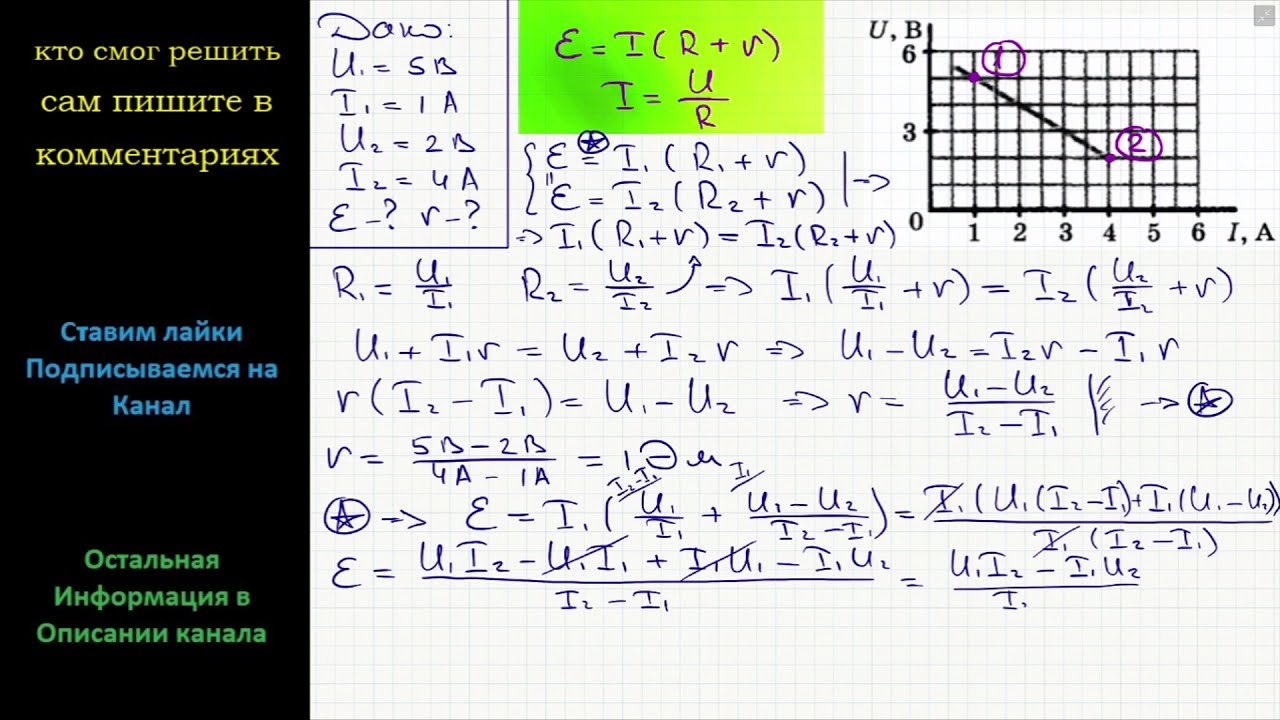 кто смог решить
сам пишите в
комментариях
Ставим лайки
Подписываемся на
Канал
Остальная
Информация в
Описании канала
Дано:
U₁ = 5В
I₁ = 1 А
U₂ = 2В
I₂ = 4 А
ℰ -? r -?
ℰ = I (R + r)
I = U/R
U, В
6
3
0
1 2 3 4 5 6 I, А
1
2
ℰ = I₁ (R₁ + r)
ℰ = I₂ (R₂ + r) | ->
=> I₁ (R₁ + r) = I₂ (R₂ + r)
R₁ = U₁/I₁ R₂ = U₂/I₂ => I₁ (U₁/I₁ + r) = I₂ (U₂/I₂ + r)
U₁ + I₁r = U₂ + I₂r => U₁ - U₂ = I₂r - I₁r
r (I₂ - I₁) = U₁ - U₂ => r = (U₁ - U₂)/(I₂ - I₁) ->
r = (5В - 2В)/(4А - 1А) = 1 Ом
=> ℰ = I₁ (U₁/I₁ + (U₁ - U₂)/(I₂ - I₁)) = I₁ (U₁(I₂ - I₁) + I₁(U₁ - U₂))/(I₁ (I₂ - I₁))
I₂ - I₁
I₁
ℰ = (U₁I₂ - U₁I₁ + I₁U₁ - I₁U₂)/(I₂ - I₁) = (U₁I₂ - I₁U₂)/I₂